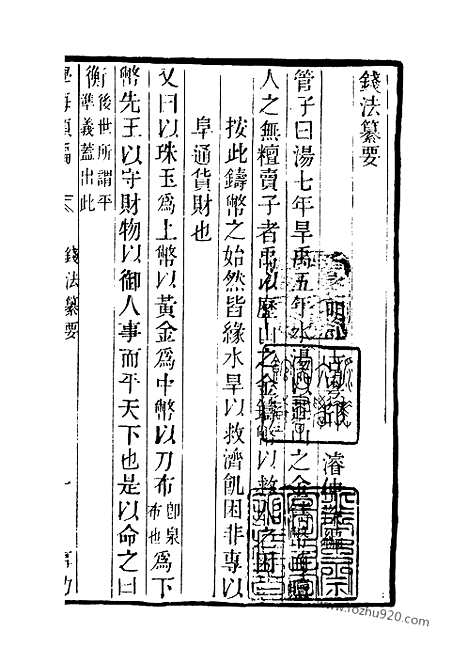 錢法纂要
明 濬仲深
管子曰湯七年旱禹五年水湯以莊山之金鑄幣而贖
人之無𥼷賣子者禹以歷山之金鑄幣以救人之困
按此鑄幣之始然皆緣水旱以救濟飢困非專以
阜通貨財也
又曰以珠玉爲上幣以黃金爲中幣以刀布即泉布也爲下
幣先王以守財物以御人事而平天下也是以命之曰
衡後世所謂平準義蓋出此
學海類編 錢法纂要 一 事功
www.rozhu920.com